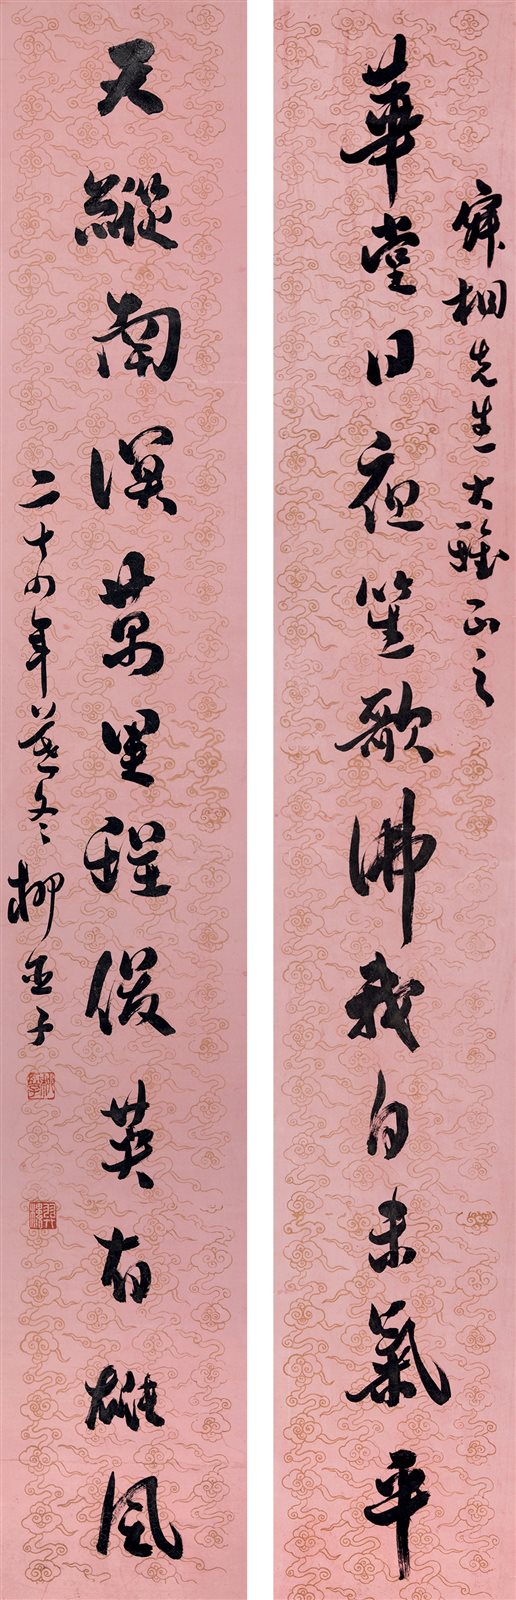 華堂日夜笙歌沸我自未氣平
桐先生大雅正之
天縱南溟萬里程俊英有雄風
二十四年冬柳亞子